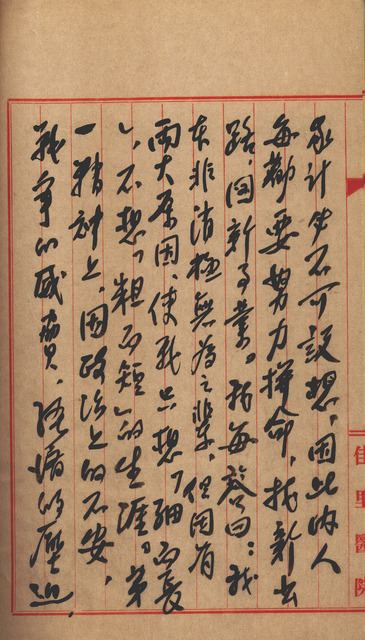 家計 不可設想,因此内人
每都要努力拼命,找新出
路,圖新事業。我每答曰:我
本非消極無為之輩,但因有
兩大原因,使我只想「細而長
」,不想「粗而短」的生涯。第
一精神上,因政治上的不安,
戰爭的威脅,經濟的壓迫,
佳里醫院